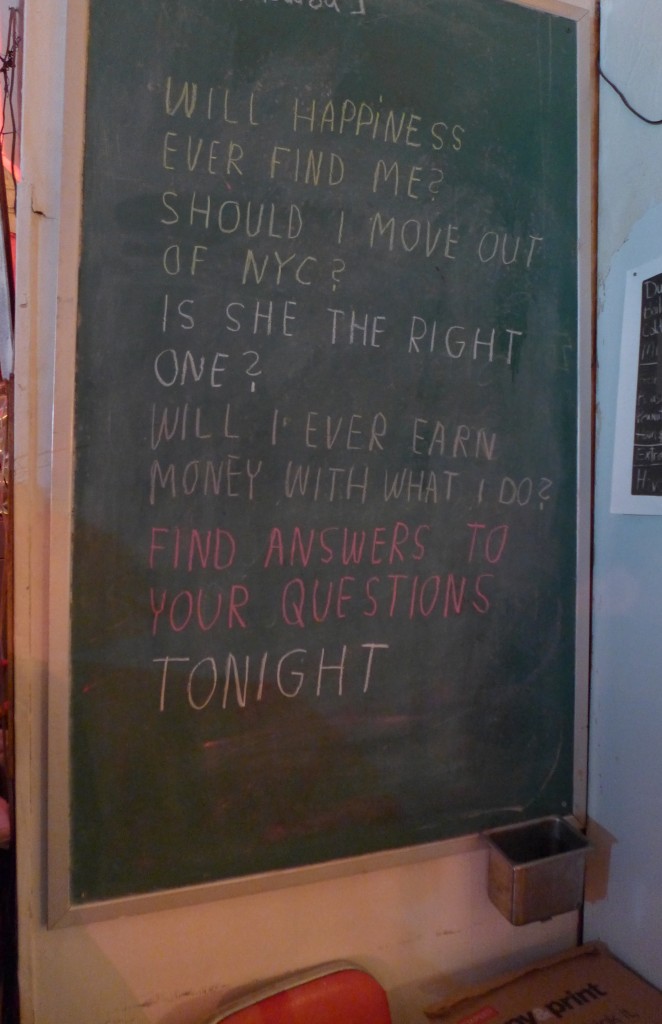 WILL HAPPINESS
EVER FIND ME?
SHOULD I MOVE OUT
OF NYC?
IS SHE THE RIGHT
ONE?
WILL I EVER EARN
MONEY WITH WHAT I DO?
FIND ANSWERS TO
YOUR QUESTIONS
TONIGHT
print